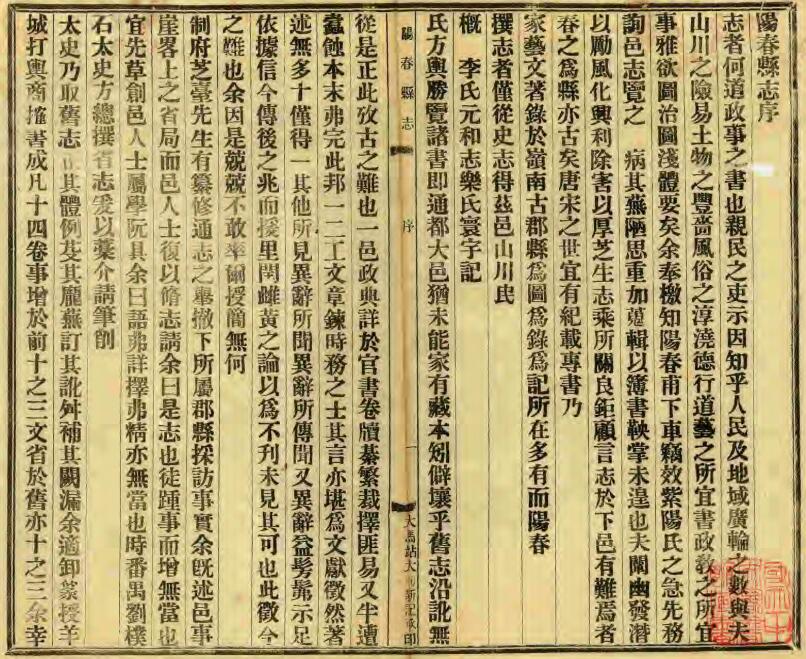 陽春縣志序
志者何道政事之書也親民之吏示因知乎人民及地域廣輪之數與夫
山川之險易土物之豐嗇風俗之淳澆德行道藝之所宜書政敎之所宜
事雅欲圖治圖淺體要矣余奉檄知陽春甫下車竊效紫陽氏之急先務
詢邑志覽之 病其蕪陋思重加蒐輯以簿書鞅掌未遑也夫闡幽發潛
以勵風化興利除害以厚芝生志乘所關良鉅顧言志於下邑有難焉者
春之爲縣亦古矣唐宋之世宜有紀載專書乃
家藝文著錄於嶺南古郡縣爲圖爲錄爲記所在多有而陽春
撰志者僅從史志得茲邑山川民
概 李氏元和志樂氏寰宇記
氏方輿勝覽諸書即通都大邑猶未能家有藏本矧僻壤乎舊志沿訛無
陽春縣志
序
一
大馬站大 新記承印
從是正此攷古之難也一邑政典詳於官書卷牘綦繁裁擇匪易又半遭
蠹蝕本末弗完此邦一二工文章鍊時務之士其言亦堪爲文獻徵然著
述無多十僅得一其他所見異辭所聞異辭所傳聞又異辭益髣髴示足
依據信今傳後之兆而援里閈雌黃之論以爲不刋未見其可也此徵今
之難也余因是兢兢不敢率爾授簡無何
制府芝臺先生有纂修通志之舉撤下所屬郡縣採訪事實余旣述邑事
崖畧上之省局而邑人士復以脩志請余曰是志也徒踵事而增無當也
宜先草創邑人士屬學阮具余曰語弗詳擇弗精亦無當也時番禺劉樸
石太史方總撰省志爰以藁介請筆削
太史乃取舊志 其體例芟其龐蕪訂其訛舛補其闕漏余適卸篆授羊
城打輿商搉書成凡十四卷事增於前十之三文省於舊亦十之三余幸